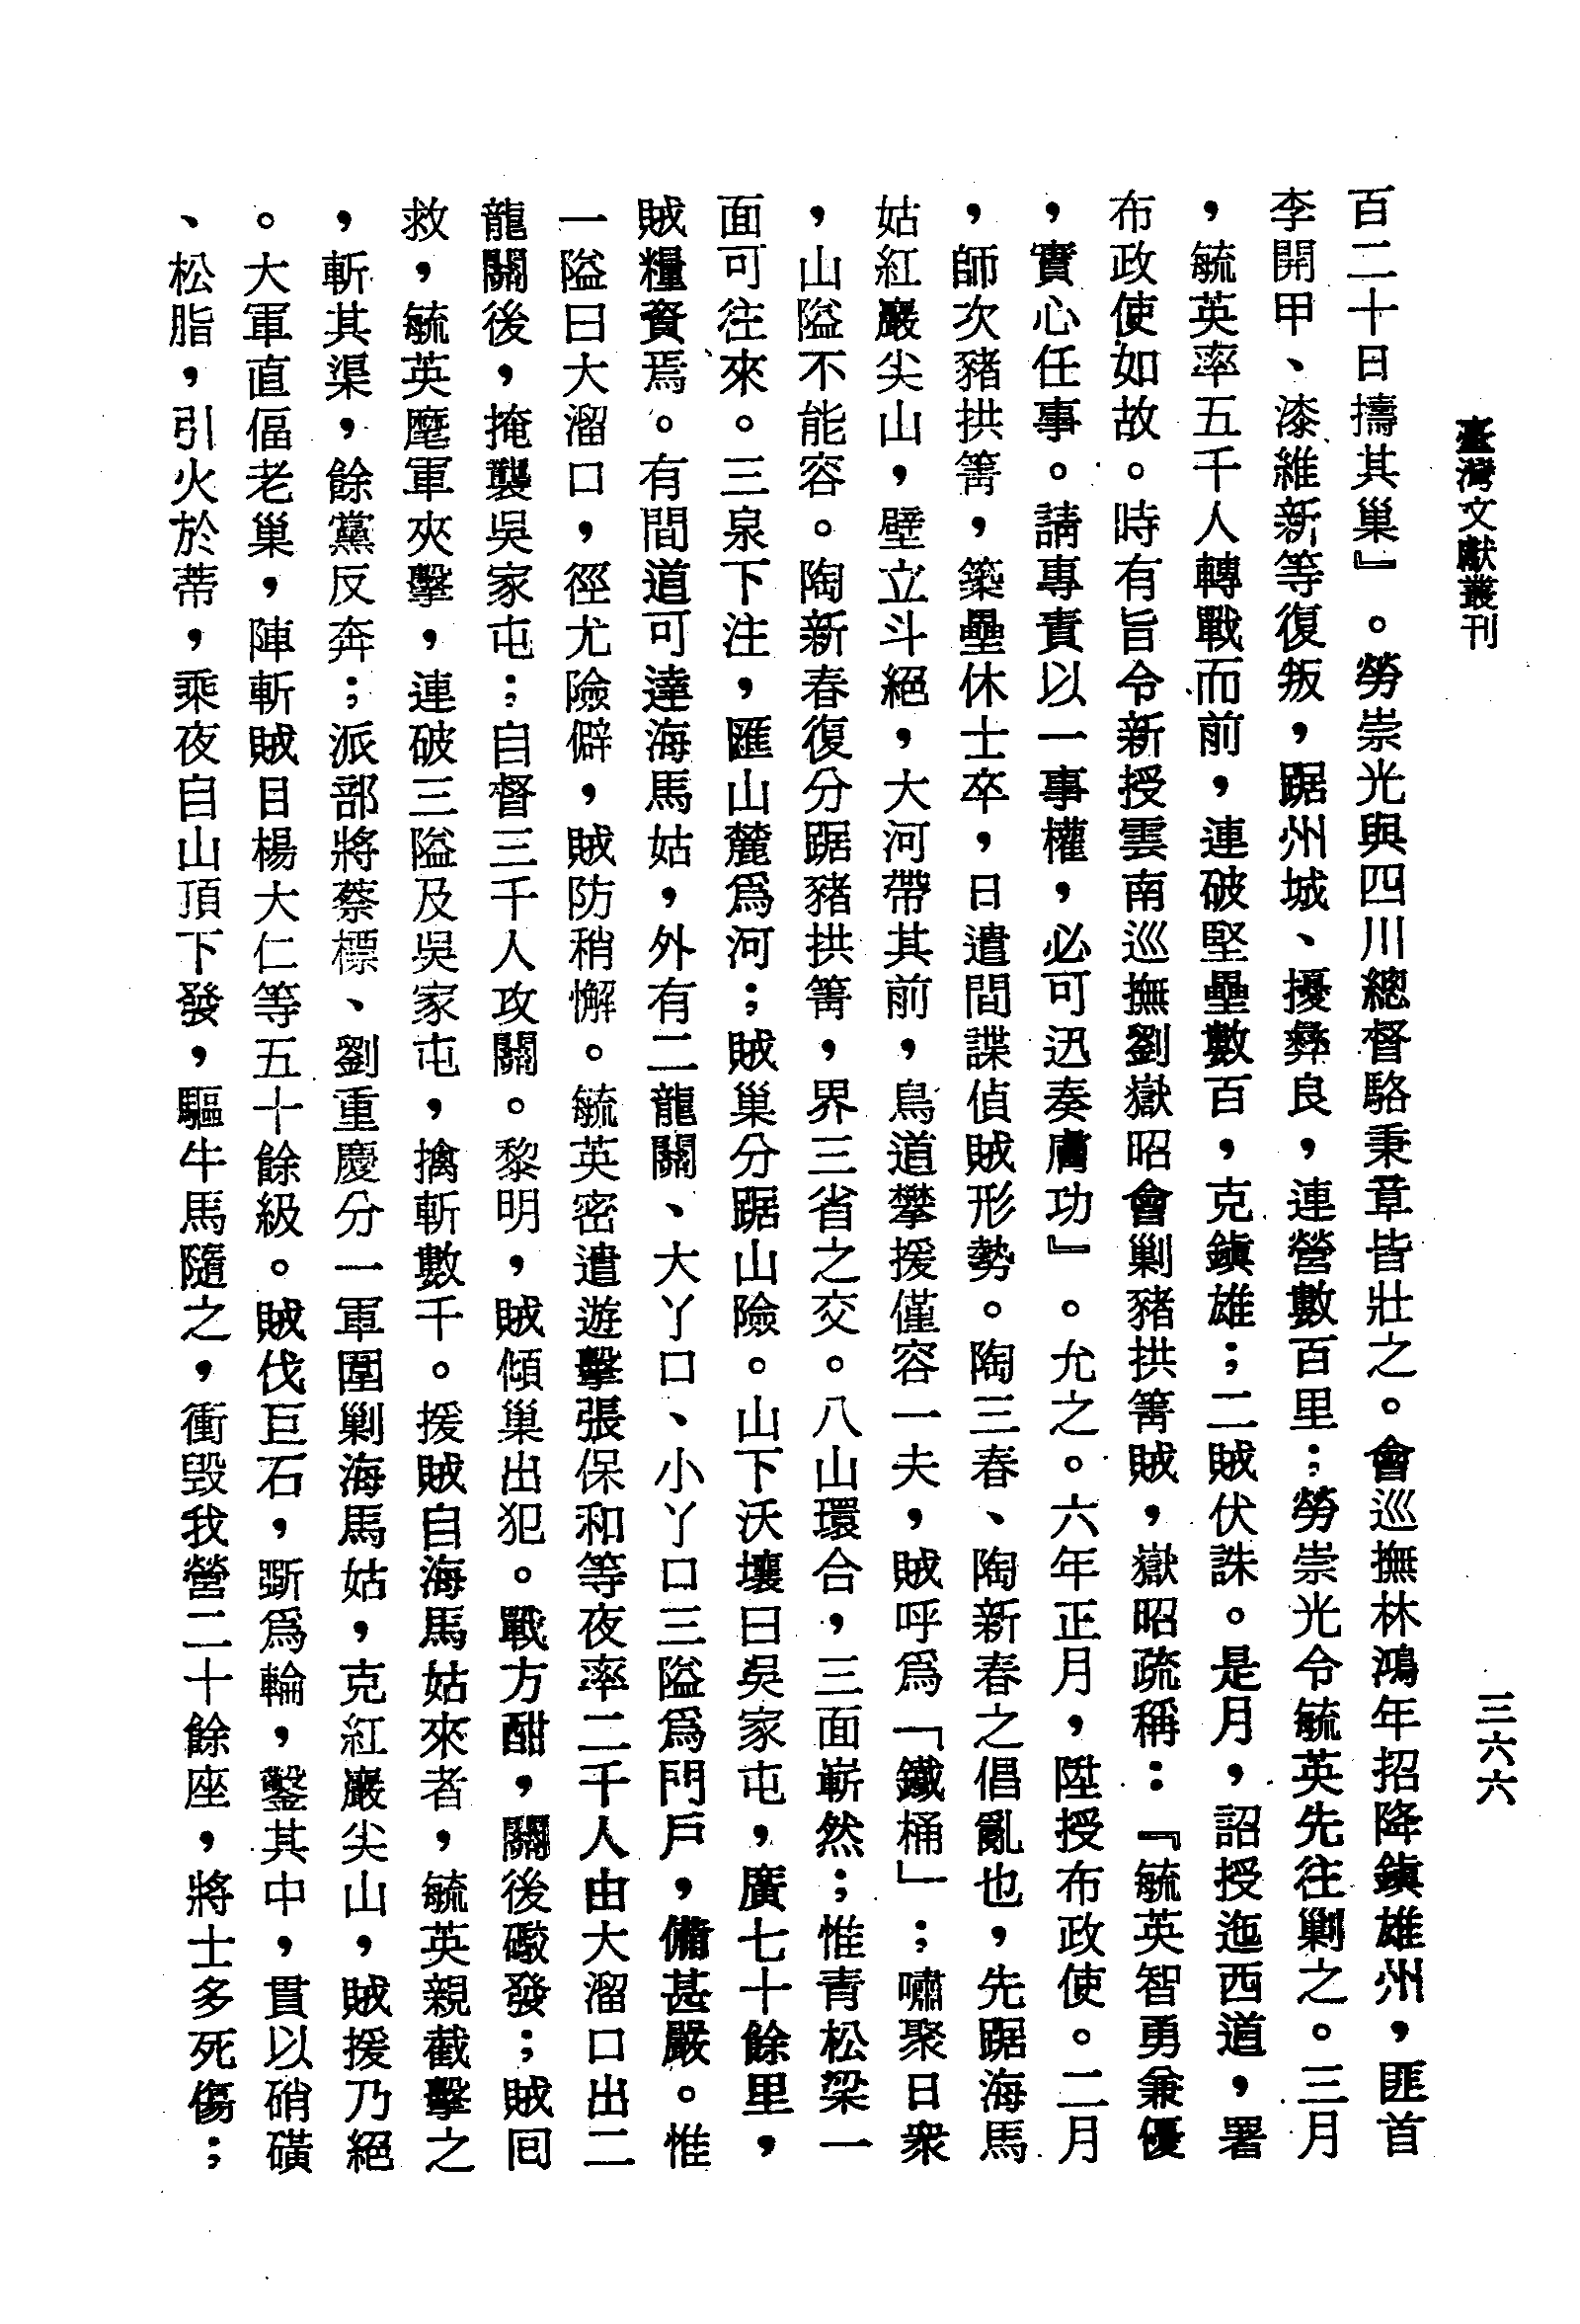 臺灣文獻叢刊
三六六
百二十日擣其巢』。勞崇光與四川總督駱秉章皆壯之。會巡撫林鴻年招降鎮雄州，匪首
李開甲、漆維新等復叛，踞州城、擾彝良，連營數百里；勞崇光令毓英先往剿之。三月
，毓英率五千人轉戰而前，連破堅壘數百，克鎮雄；二賊伏誅。是月，詔授迤西道，署
布政使如故。時有旨令新授雲南巡撫劉嶽昭會剿豬拱箐賊，嶽昭疏稱：『毓英智勇兼優
，實心任事。請專責以一事權，必可迅奏膚功』。允之。六年正月，陞授布政使。二月
，師次豬拱箐，築壘休士卒，日遣間諜偵賊形勢。陶三春、陶新春之倡亂也，先踞海馬
姑紅巖尖山，壁立斗絕，大河帶其前，鳥道攀援僅容一夫，賊呼爲「鐵桶」；嘯聚日衆
，山隘不能容。陶新春復分踞豬拱箐，界三省之交。八山環合，三面嶄然；惟青松梁一
面可往來。三泉下注，匯山麓爲河；賊巢分踞山險。山下沃壤曰吳家屯，廣七十餘里，
賊糧資焉。有間道可達海馬姑，外有二龍關、大丫口、小丫口三隘爲門戶，備甚嚴。惟
一隘曰大溜口，徑尤險僻，賊防稍懈。毓英密遣遊擊張保和等夜率二千人由大溜口出二
龍關後，掩襲吳家屯；自督三千人攻關。黎明，賊傾巢出犯。戰方酣，關後礮發；賊囘
救，毓英麾軍夾擊，連破三隘及吳家屯，擒斬數千。援賊自海馬姑來者，毓英親截擊之
，斬其渠，餘黨反奔；派部將蔡標、劉重慶分一軍圍剿海馬姑，克紅巖尖山，賊援乃絕
。大軍直偪老巢，陣斬賊目楊大仁等五十餘級。賊伐巨石，斲爲輪，鑿其中，貫以硝磺
、松脂，引火於蒂，乘夜自山頂下發，驅牛馬隨之，衝毀我營二十餘座，將士多死傷；